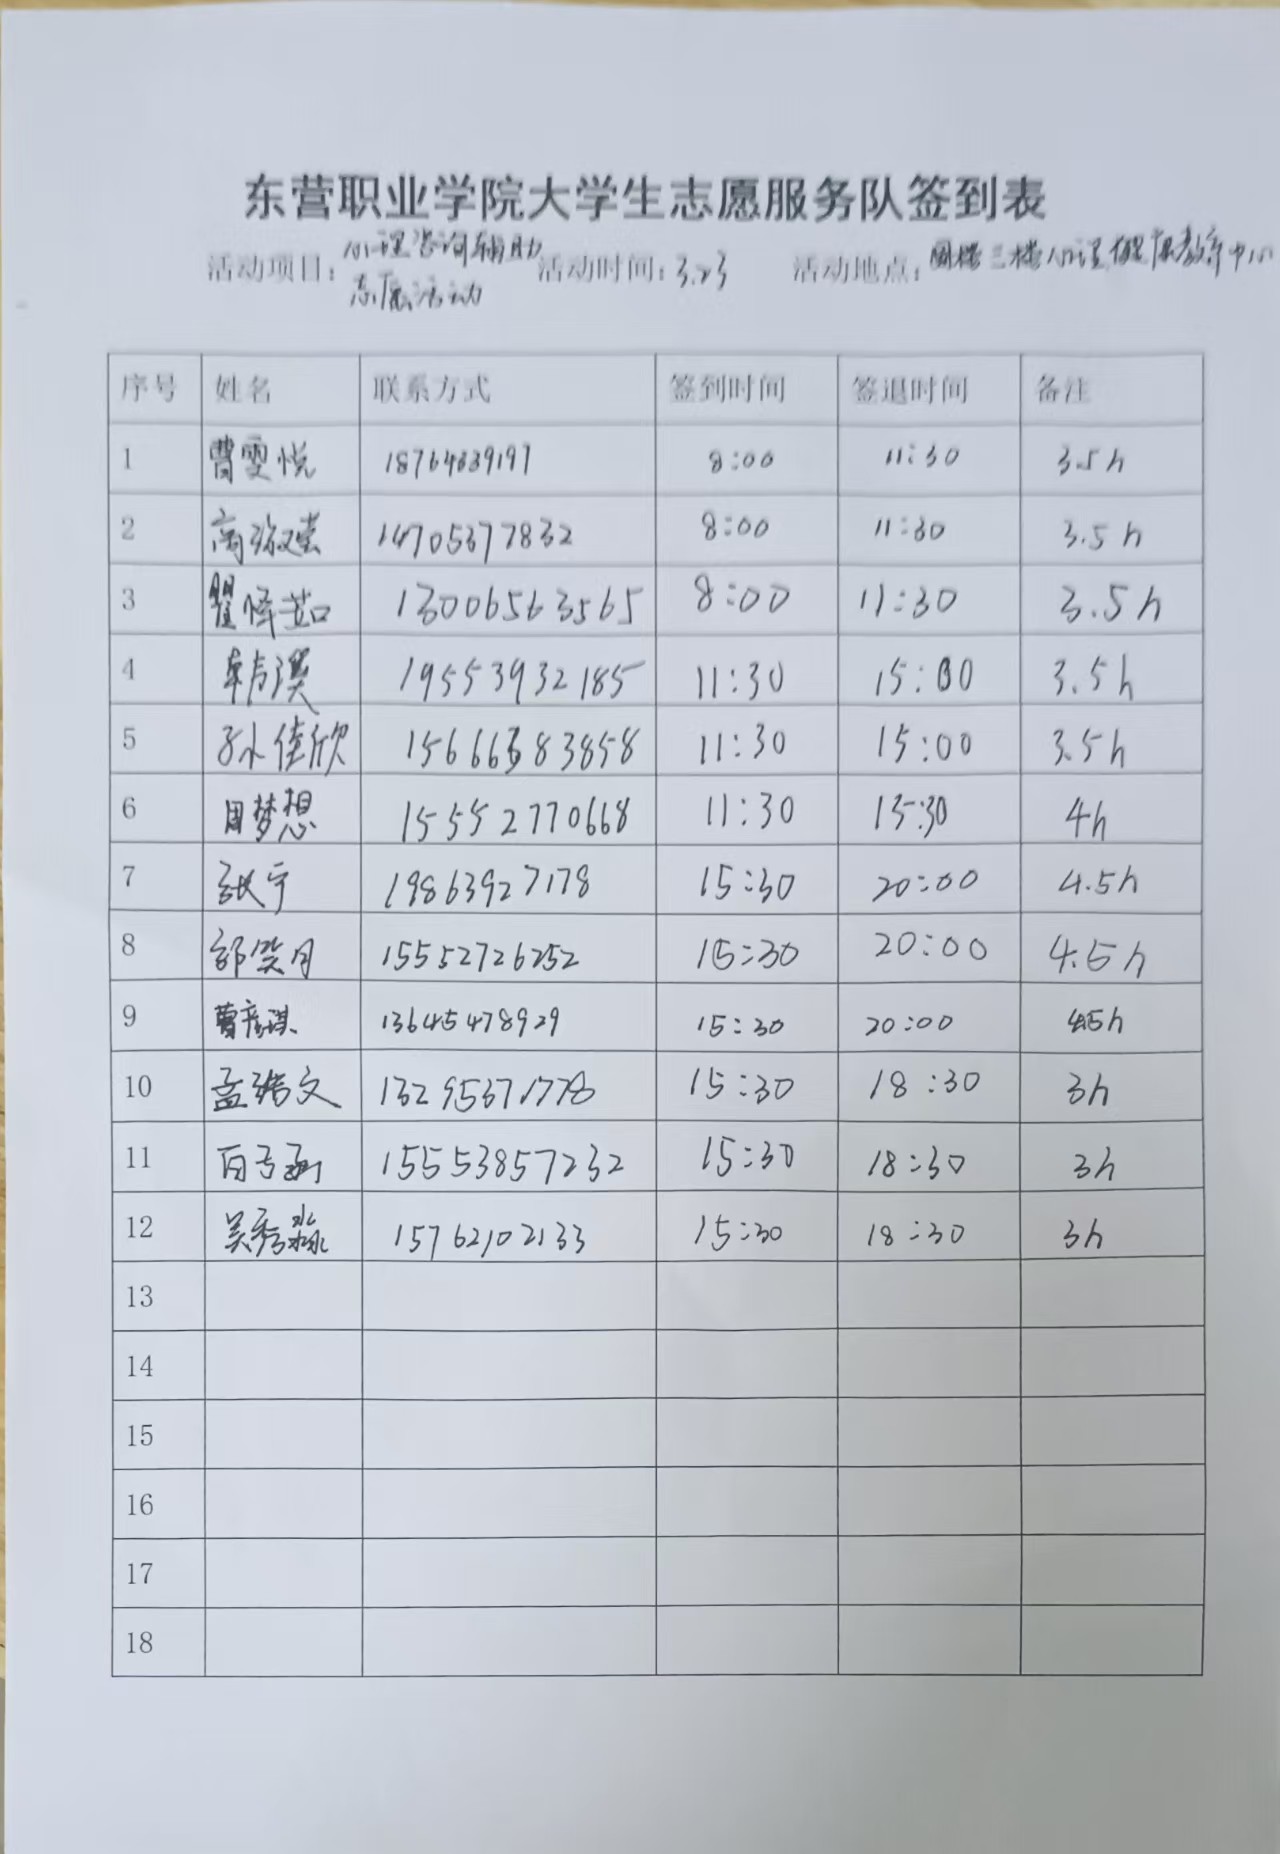 东营职业学院大学生志愿服务队签到表
活动项目：心理咨询辅助志愿活动 活动时间：3.23 活动地点：圆楼三楼心理健康教育中心
序号 姓名 联系方式 签到时间 签退时间 备注
1 曹雯悦 18764839197 8:00 11:30 3.5h
2 高 14705377832 8:00 11:30 3.5h
3 瞿怿茹 13006563565 8:00 11:30 3.5h
4 韩潩 19553932185 11:30 15:00 3.5h
5 孙佳欣 15666383858 11:30 15:00 3.5h
6 周梦想 15552770668 11:30 15:30 4h
7 张宁 19863927178 15:30 20:00 4.5h
8 郭笑月 15552726252 15:30 20:00 4.5h
9 曹彦琪 13645478929 15:30 20:00 4.5h
10 孟文 13295371778 15:30 18:30 3h
11 百函 15553857232 15:30 18:30 3h
12 吴秀淼 15762102133 15:30 18:30 3h
13
14
15
16
17
18